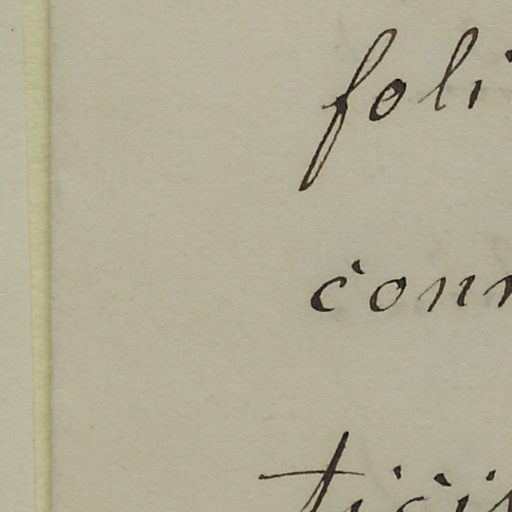 foli
conn
ticis